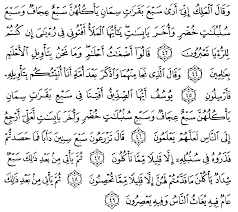 وَقَالَ الْمَلِكُ إِنِّي أَرَىٰ سَبْعَ بَقَرَاتٍ سِمَانٍ يَأْكُلُهُنَّ سَبْعٌ عِجَافٌ وَسَبْعَ
سُنبُلَاتٍ خُضْرٍ وَأُخَرَ يَابِسَاتٍ يَا أَيُّهَا الْمَلَأُ أَفْتُونِي فِي رُؤْيَايَ إِن كُنتُمْ
لِلرُّؤْيَا تَعْبُرُونَ ﴿٤٣﴾ قَالُوا أَضْغَاثُ أَحْلَامٍ وَمَا نَحْنُ بِتَأْوِيلِ الْأَحْلَامِ
بِعَالِمِينَ ﴿٤٤﴾ وَقَالَ الَّذِي نَجَا مِنْهُمَا وَادَّكَرَ بَعْدَ أُمَّةٍ أَنَا أُنَبِّئُكُم بِتَأْوِيلِهِ
فَأَرْسِلُونِ ﴿٤٥﴾ يُوسُفُ أَيُّهَا الصِّدِّيقُ أَفْتِنَا فِي سَبْعِ بَقَرَاتٍ سِمَانٍ
يَأْكُلُهُنَّ سَبْعٌ عِجَافٌ وَسَبْعِ سُنبُلَاتٍ خُضْرٍ وَأُخَرَ يَابِسَاتٍ لَّعَلِّي أَرْجِعُ
إِلَى النَّاسِ لَعَلَّهُمْ يَعْلَمُونَ ﴿٤٦﴾ قَالَ تَزْرَعُونَ سَبْعَ سِنِينَ دَأَبًا فَمَا حَصَدتُّمْ
فَذَرُوهُ فِي سُنبُلِهِ إِلَّا قَلِيلًا مِّمَّا تَأْكُلُونَ ﴿٤٧﴾ ثُمَّ يَأْتِي مِن بَعْدِ ذَٰلِكَ سَبْعٌ
شِدَادٌ يَأْكُلْنَ مَا قَدَّمْتُمْ لَهُنَّ إِلَّا قَلِيلًا مِّمَّا تُحْصِنُونَ ﴿٤٨﴾ ثُمَّ يَأْتِي مِن بَعْدِ ذَٰلِكَ
عَامٌ فِيهِ يُغَاثُ النَّاسُ وَفِيهِ يَعْصِرُونَ ﴿٤٩﴾